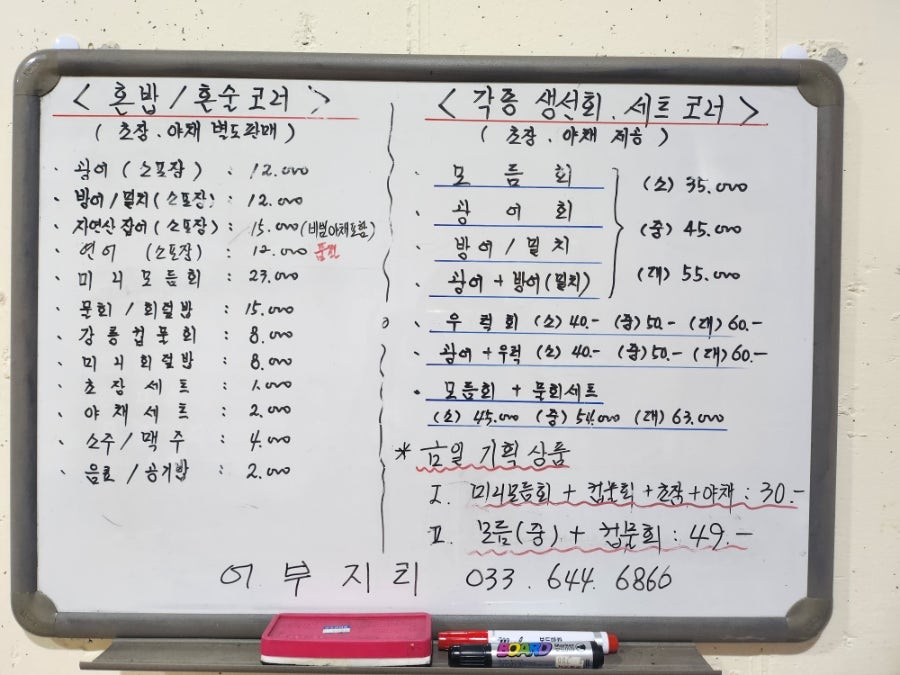 < 혼밥 / 혼술 코너 >
( 초장 . 야채 별도판매 )
· 광어 ( 소포장 ) : 12.000
· 방어/밀치 ( 소포장 ) : 12.000
· 자연산 잡어 ( 소포장 ) : 15.000 (비빔야채포함)
· 연어 ( 소포장 ) : 12.000 품절
· 미니모듬회 : 23.000
· 물회 / 회덮밥 : 15.000
· 강릉컵물회 : 8.000
· 미니회덮밥 : 8.000
· 초장세트 : 1.000
· 야채세트 : 2.000
· 소주 / 맥주 : 4.000
· 음료 / 공기밥 : 2.000
< 각종 생선회 . 세트 코너 >
( 초장 . 야채 제공 )
· 모듬회
광어회
방어 / 밀치
· 광어 + 방어 (밀치)
(소) 35.000
(중) 45.000
(대) 55.000
· 우럭회 (소) 40.- (중) 50.- (대) 60.-
· 광어+우럭 (소) 40.- (중) 50.- (대) 60.-
· 모듬회 + 물회세트
(소) 45.000 (중) 54.000 (대) 63.000
* 금일 기획 상품
I. 미니모듬회 + 컵물회 + 초장 + 야채 : 30.-
II. 모듬(중) + 컵물회 : 49.-
어부지리 033 . 644. 6866
BOARD